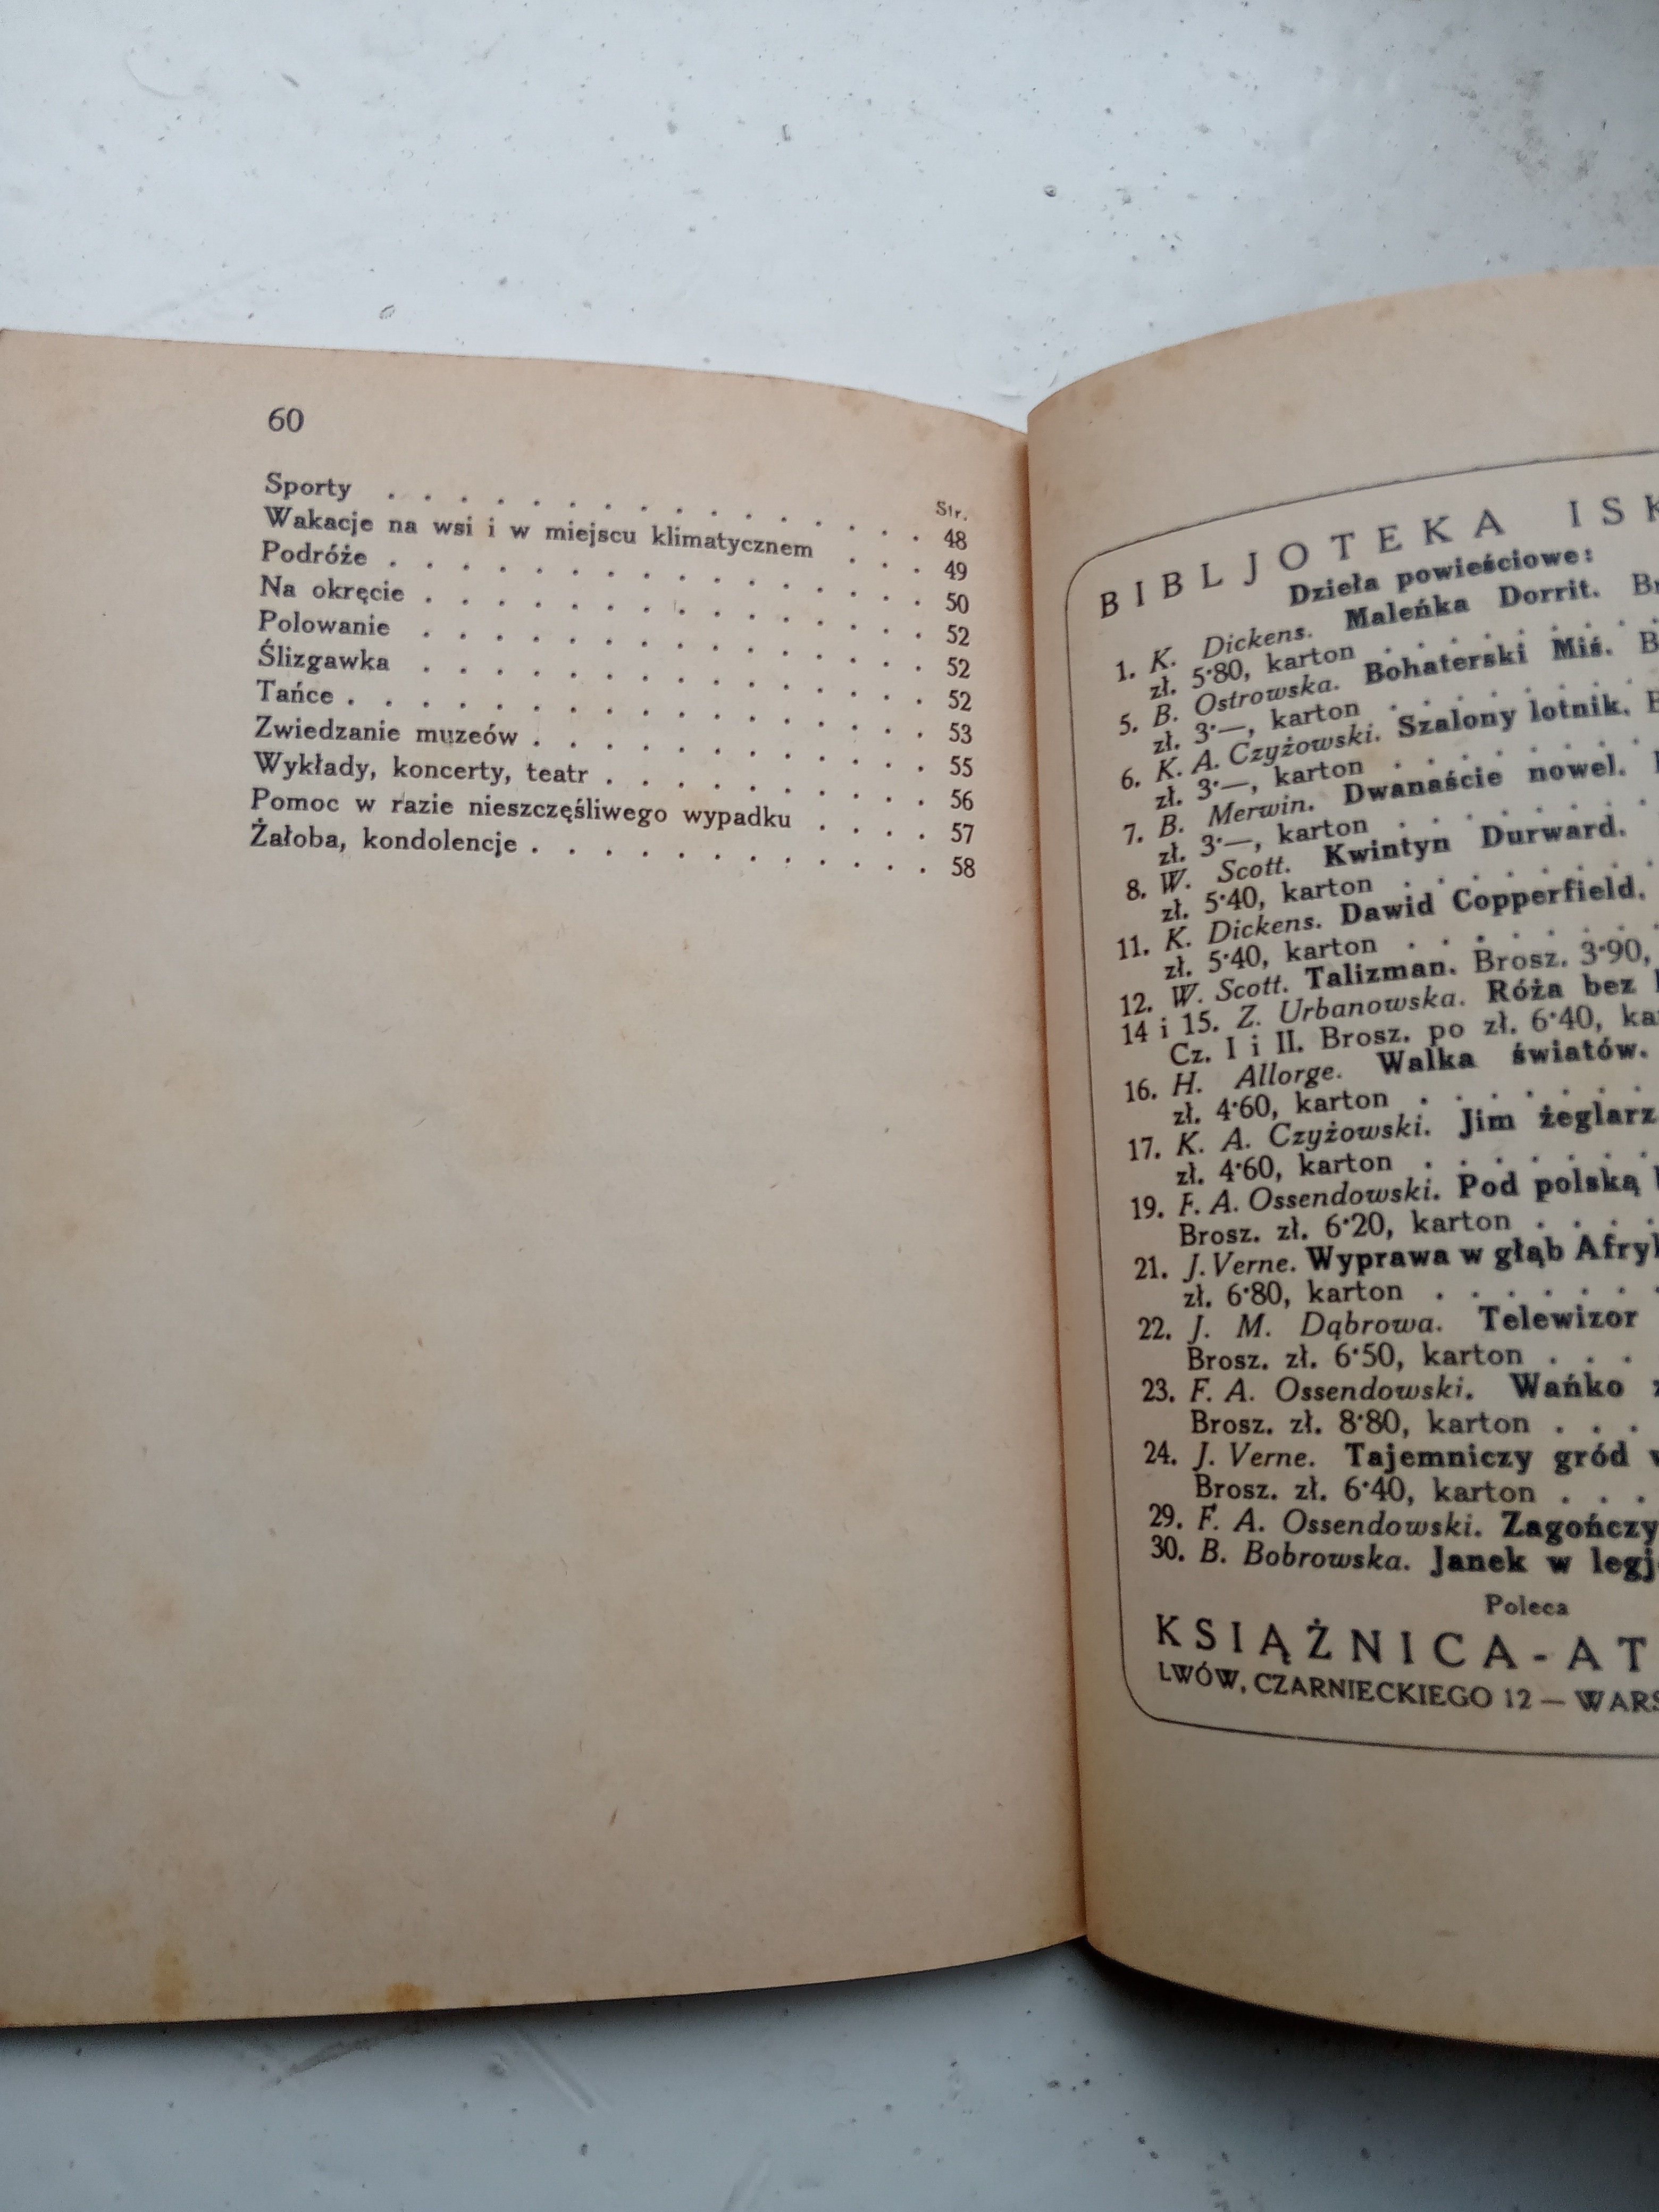 60
Str.
Sporty . . . . . . . . . . . . . . . 48
Wakacje na wsi i w miejscu klimatycznem . . . 49
Podróże . . . . . . . . . . . . . . . 50
Na okręcie . . . . . . . . . . . . . . 52
Polowanie . . . . . . . . . . . . . . 52
Ślizgawka . . . . . . . . . . . . . . 52
Tańce . . . . . . . . . . . . . . . . 53
Zwiedzanie muzeów . . . . . . . . . . . 55
Wykłady, koncerty, teatr . . . . . . . . . 56
Pomoc w razie nieszczęśliwego wypadku . . . . 57
Żałoba, kondolencje . . . . . . . . . . . 58
BIBLJOTEKA
Dzieła powieściowe:
1. K. Dickens. Maleńka Dorrit.
zł. 5·80, karton . . . . . . .
5. B. Ostrowska. Bohaterski Miś.
zł. 3·—, karton . . . . . . .
6. K. A. Czyżowski. Szalony lotnik.
zł. 3·—, karton . . . . . . .
7. B. Merwin. Dwanaście nowel.
zł. 3·—, karton . . . . . . .
8. W. Scott. Kwintyn Durward.
zł. 5·40, karton . . . . . . .
11. K. Dickens. Dawid Copperfield.
zł. 5·40, karton . . . . . . .
12. W. Scott. Talizman. Brosz. 3·90,
14 i 15. Z. Urbanowska. Róża bez
Cz. I i II. Brosz. po zł. 6·40,
16. H. Allorge. Walka światów.
zł. 4·60, karton . . . . . . .
17. K. A. Czyżowski. Jim żeglarz
zł. 4·60, karton . . . . . . .
19. F. A. Ossendowski. Pod polską
Brosz. zł. 6·20, karton . . . .
21. J. Verne. Wyprawa w głąb
zł. 6·80, karton . . . . . . .
22. J. M. Dąbrowa. Telewizor
Brosz. zł. 6·50, karton . . .
23. F. A. Ossendowski. Wańko
Brosz. zł. 8·80, karton . . .
24. J. Verne. Tajemniczy gród
Brosz. zł. 6·40, karton . . .
29. F. A. Ossendowski.
30. B. Bobrowska. Janek w
Poleca
KSIĄŻNICA-AT
LWÓW, CZARNIECKIEGO 12 —